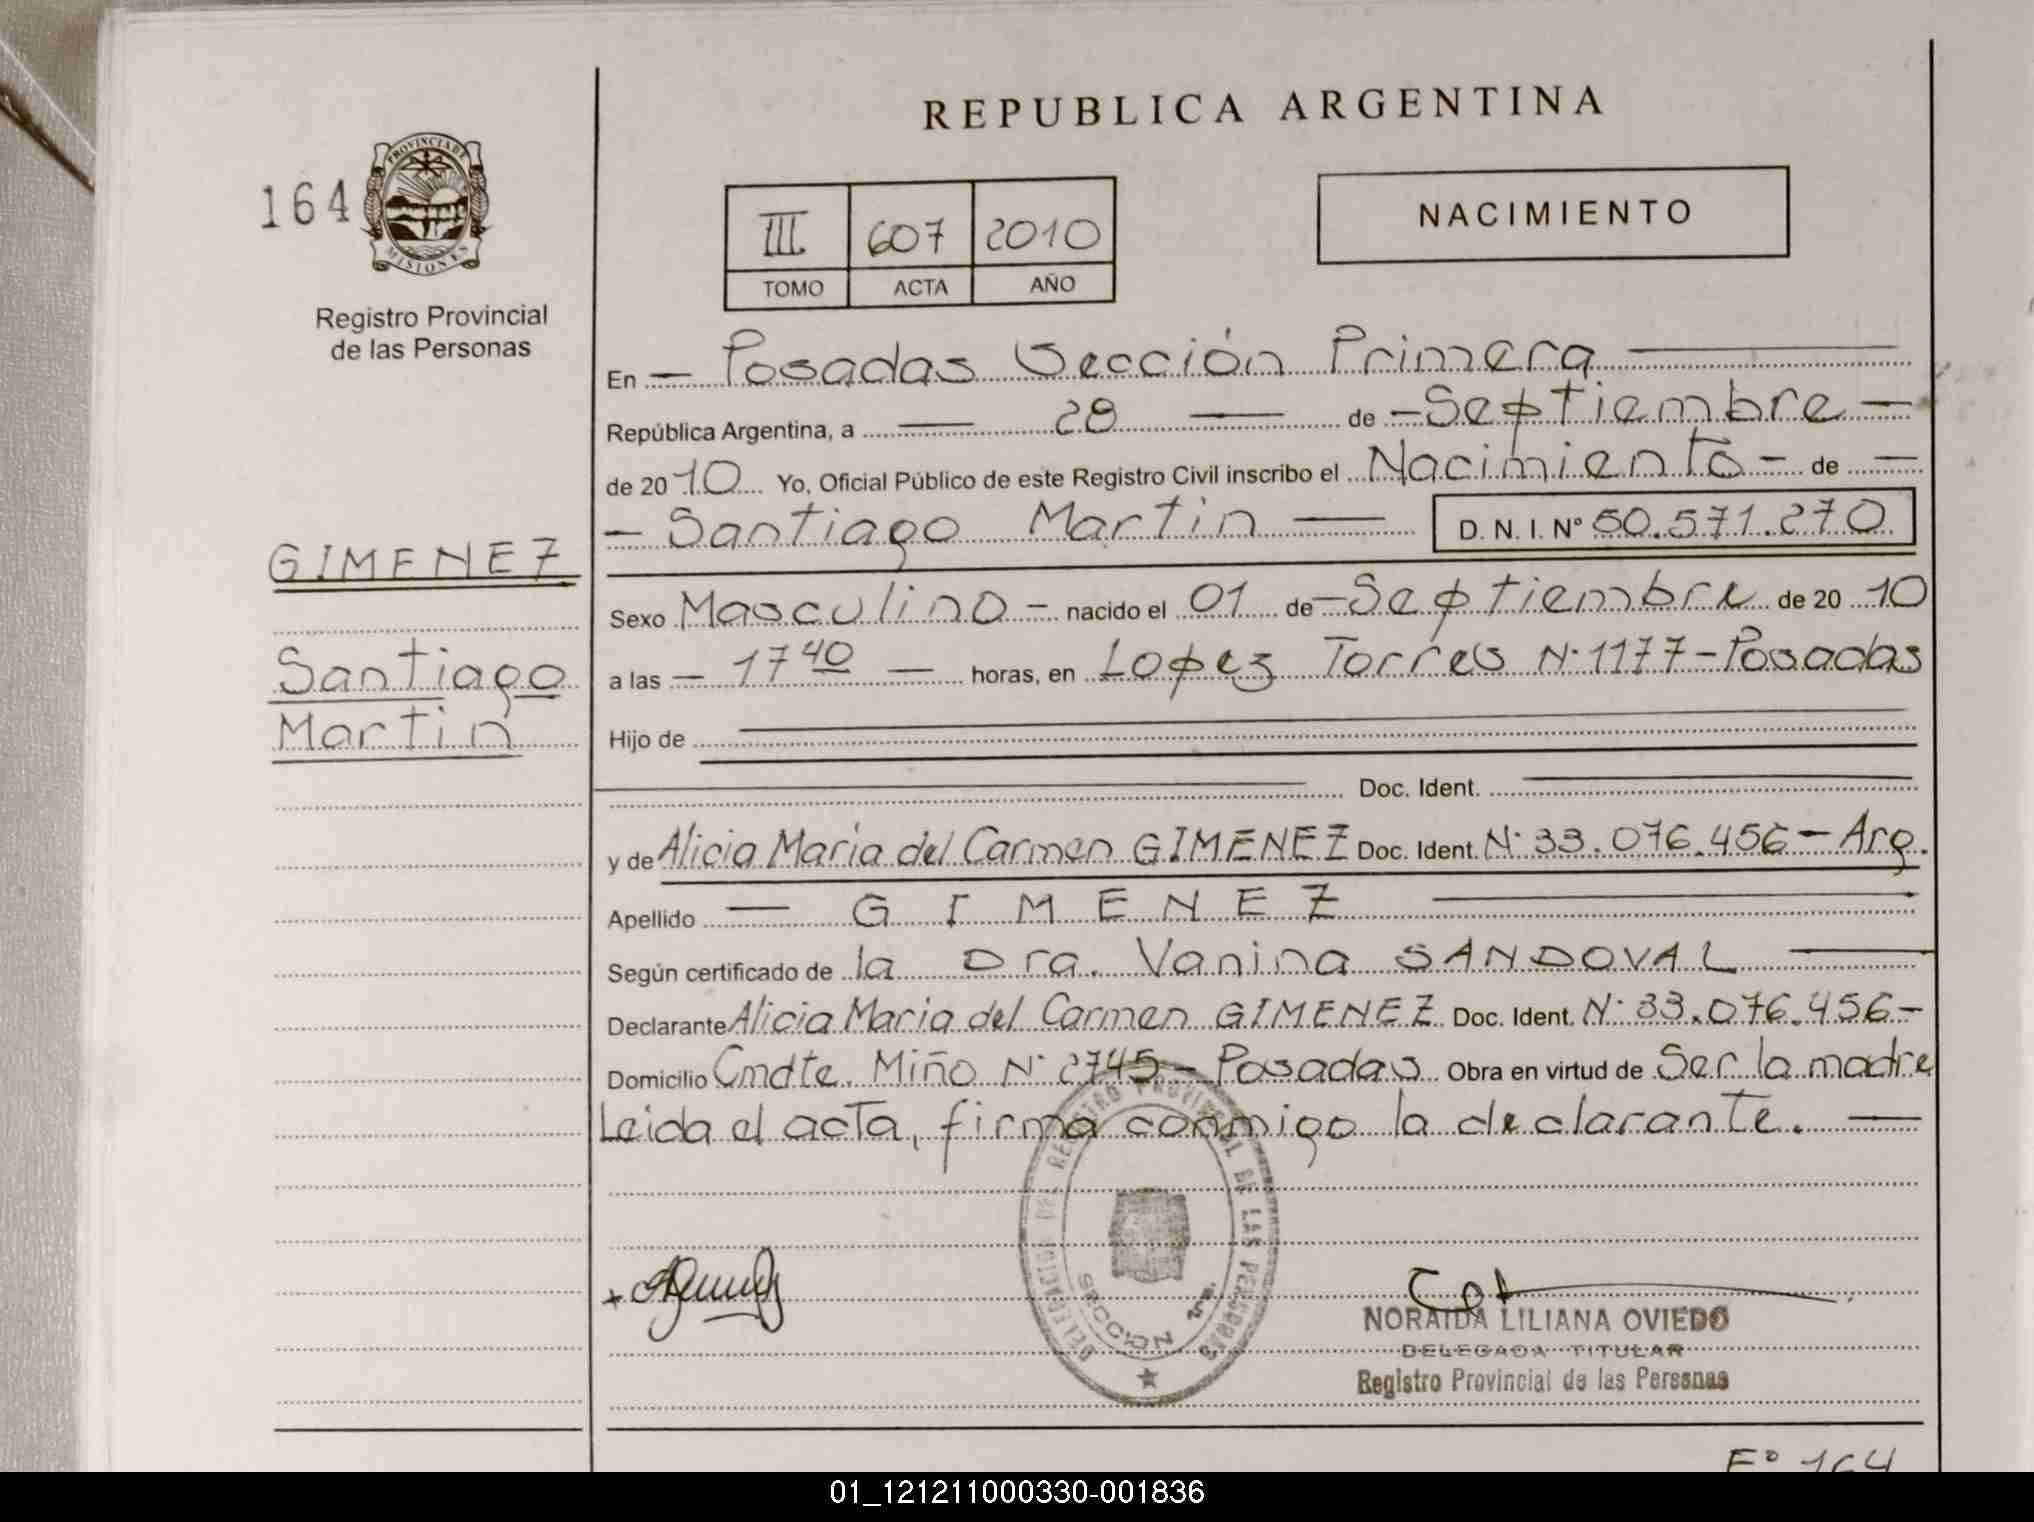 REPUBLICA ARGENTINA
164
PROVINCIA DE
MISIONES
Registro Provincial
de las Personas
III 607 2010
TOMO ACTA AÑO
NACIMIENTO
En — Posadas Sección Primera —
República Argentina, a — 28 — de — Septiembre —
de 2010 Yo, Oficial Público de este Registro Civil inscribo el Nacimiento - de —
— Santiago Martin — D. N. I. Nº 50.571.270
GIMENEZ
Santiago
Martin
Sexo Masculino - nacido el 01 de - Septiembre de 2010
a las — 17 40 — horas, en Lopez Torres N· 1177 - Posadas
Hijo de
Doc. Ident.
y de Alicia Maria del Carmen GIMENEZ Doc. Ident. N· 33.076.456 - Arg.
Apellido — GIMENEZ —
Según certificado de la Dra. Vanina SANDOVAL —
Declarante Alicia Maria del Carmen GIMENEZ Doc. Ident. N· 33.076.456 -
Domicilio Cmdte. Miño N· 2745 - Posadas Obra en virtud de Ser la madre
Leida el acta, firma conmigo la declarante. —
DELEGACION DEL REGISTRO PROVINCIAL DE LAS PERSONAS
SECCION 1ra.
NORAIDA LILIANA OVIEDO
DELEGADA TITULAR
Registro Provincial de las Personas
Fº 164
01_121211000330-001836